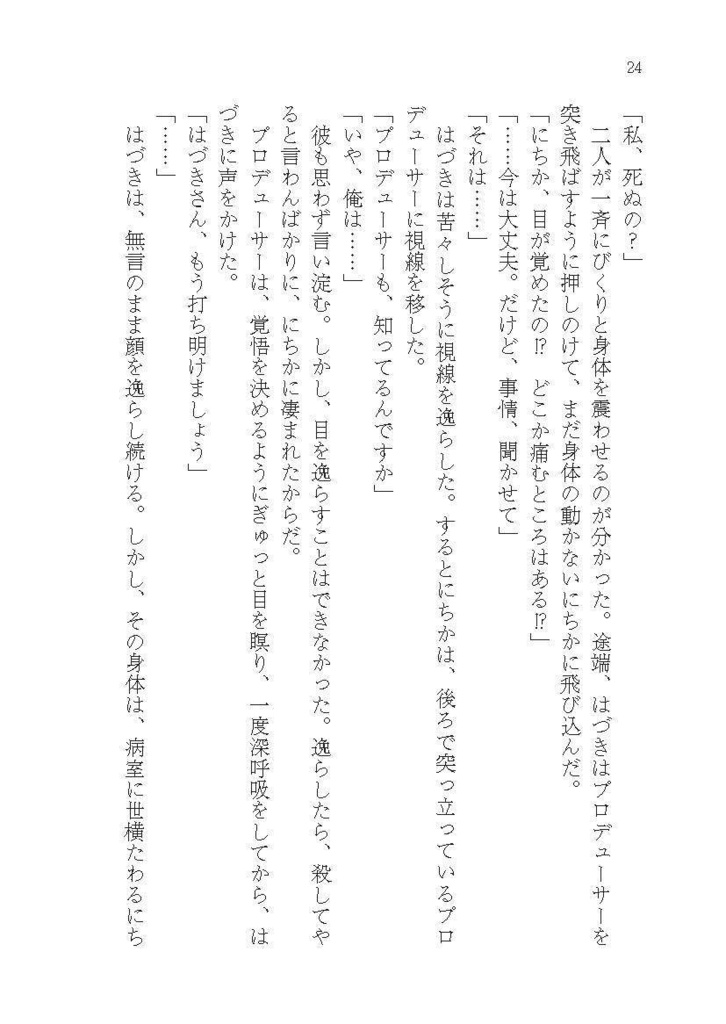 24
「私、死ぬの？」
　二人が一斉にびくりと身体を震わせるのが分かった。途端、はづきはプロデューサーを
突き飛ばすように押しのけて、まだ身体の動かないにちかに飛び込んだ。
「にちか、目が覚めたの⁉　どこか痛むところはある⁉」
「……今は大丈夫。だけど、事情、聞かせて」
「それは……」
　はづきは苦々しそうに視線を逸らした。するとにちかは、後ろで突っ立っているプロ
デューサーに視線を移した。
「プロデューサーも、知ってるんですか」
「いや、俺は……」
　彼も思わず言い淀む。しかし、目を逸らすことはできなかった。逸らしたら、殺してや
ると言わんばかりに、にちかに凄まれたからだ。
　プロデューサーは、覚悟を決めるようにぎゅっと目を瞑り、一度深呼吸をしてから、は
づきに声をかけた。
「はづきさん、もう打ち明けましょう」
「……」
　はづきは、無言のまま顔を逸らし続ける。しかし、その身体は、病室に世横たわるにち